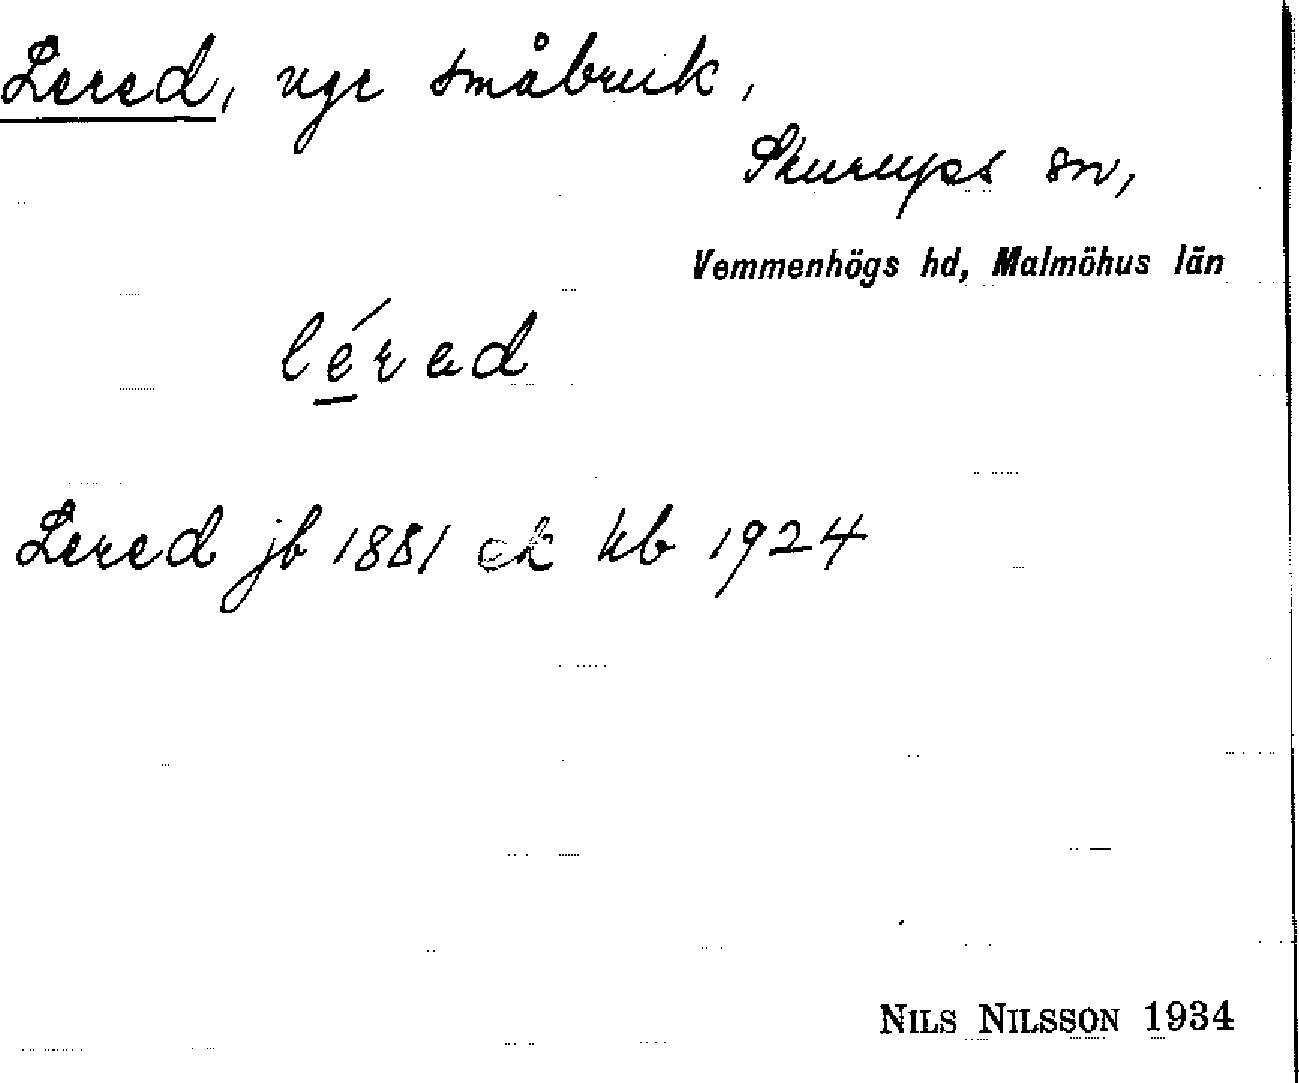 Lered, ngr småbruk,
Skurups sn,
Vemmenhögs hd, Malmöhus län
lérad
Lered jb 1881 ek kb 1924
NILS NILSSON 1934